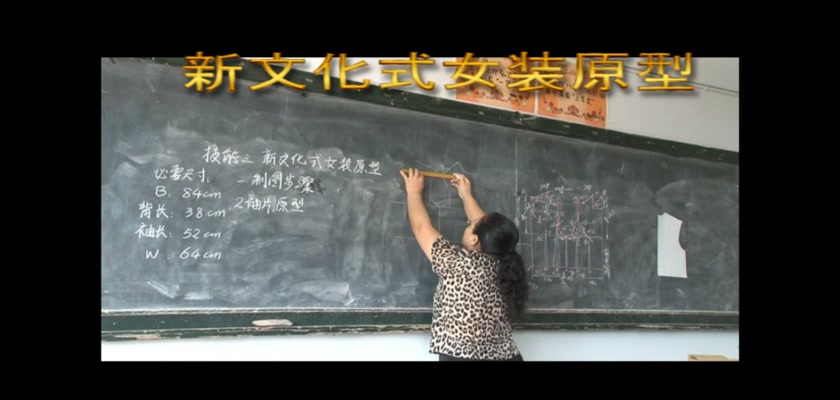 新文化式女装原型
技能之 新文化式女装原型
必需尺寸:
B: 84cm
背长: 38cm
袖长: 52cm
W: 64cm
一制图步骤
2袖片原型